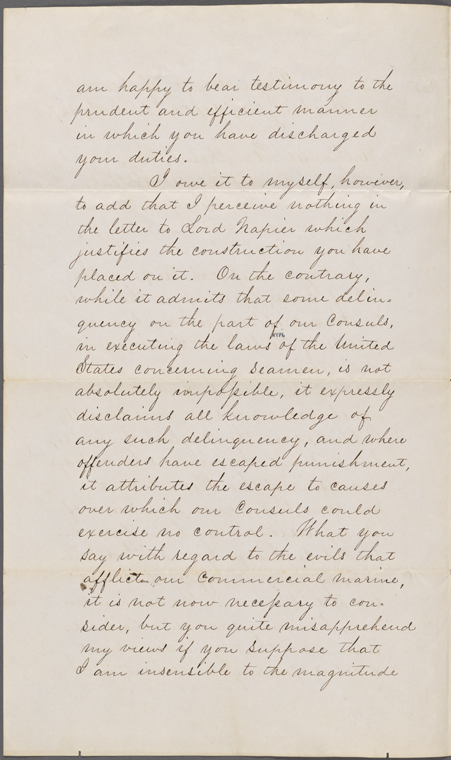 am happy to bear testimony to the
prudent and efficient manner
in which you have discharged
your duties.
I owe it to myself, however,
to add that I perceive nothing in
the letter to Lord Napier which
justifies the construction you have
placed on it. On the contrary,
while it admits that some delin-
quency on the part of our Consuls,
NYPL
in executing the laws of the United
States concerning seamen, is not
absolutely impossible, it expressly
disclaims all knowledge of
any such delinquency, and where
offenders have escaped punishment,
it attributes the escape to causes
over which our Consuls could
exercise no control. What you
say with regard to the evils that
afflict our Commercial marine,
it is not now necessary to con-
sider, but you quite misapprehend
my views if you suppose that
I am insensible to the magnitude